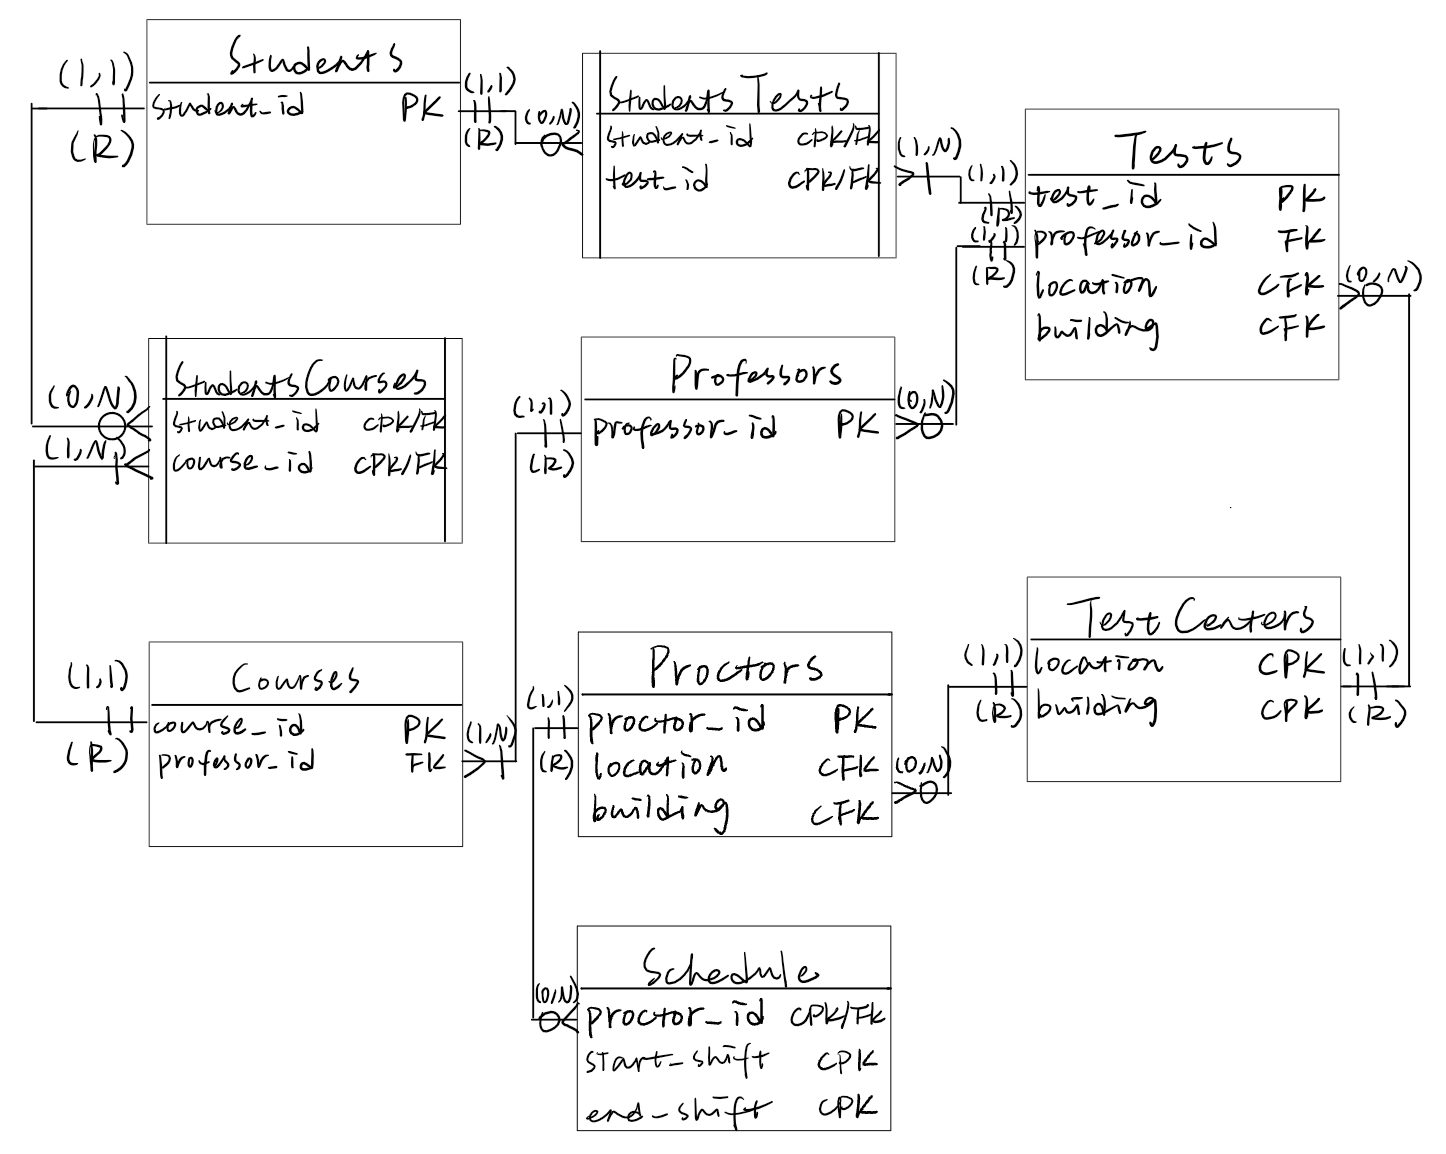 Students
student_id PK
(1,1)
(R)
(1,1)
(R)
(0,N)
Students Tests
student_id CPK/FK
test_id CPK/FK
(1,N)
(1,1)
(R)
Tests
test_id PK
professor_id FK
location CFK
building CFK
(1,1)
(R)
(0,N)
(0,N)
(1,N)
StudentsCourses
student_id CPK/FK
course_id CPK/FK
Professors
professor_id PK
(1,1)
(R)
(0,N)
(1,1)
(R)
Courses
course_id PK
professor_id FK
(1,N)
Proctors
proctor_id PK
location CFK
building CFK
(1,1)
(R)
(0,N)
Test Centers
location CPK
building CPK
(1,1)
(R)
(1,1)
(R)
Schedule
proctor_id CPK/FK
start_shift CPK
end_shift CPK
(0,N)